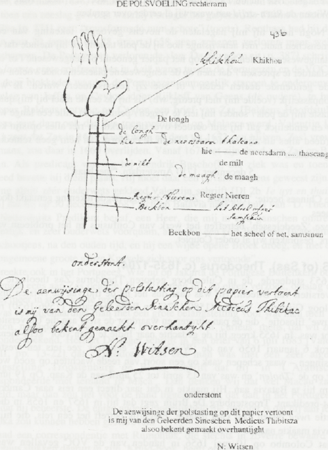 DE POLSVOELING rechterarm
456
Khikhou Khikhou
De longh
de longh
hie de neersdarm thaicang
hie de neersdarm thaicang
de milt de milt
de maagh de maagh
Regter Nieren Regter Nieren
Beckbon het scheel ofnet
samsoun
Beckbon het scheel of net, samsoun
onderstont.
De aenwijsinge der polstasting op dit papier vertoont
is mij van den Geleerden Sineschen Medicus Thibitsza
alsoo bekent gemaeckt overhantijght
N: Witsen
onderstont
De aenwijsinge der polstasting op dit papier vertoont
is mij van den Geleerden Sineschen Medicus Thibitsza
alsoo bekent gemaeckt overhantijght
N: Witsen